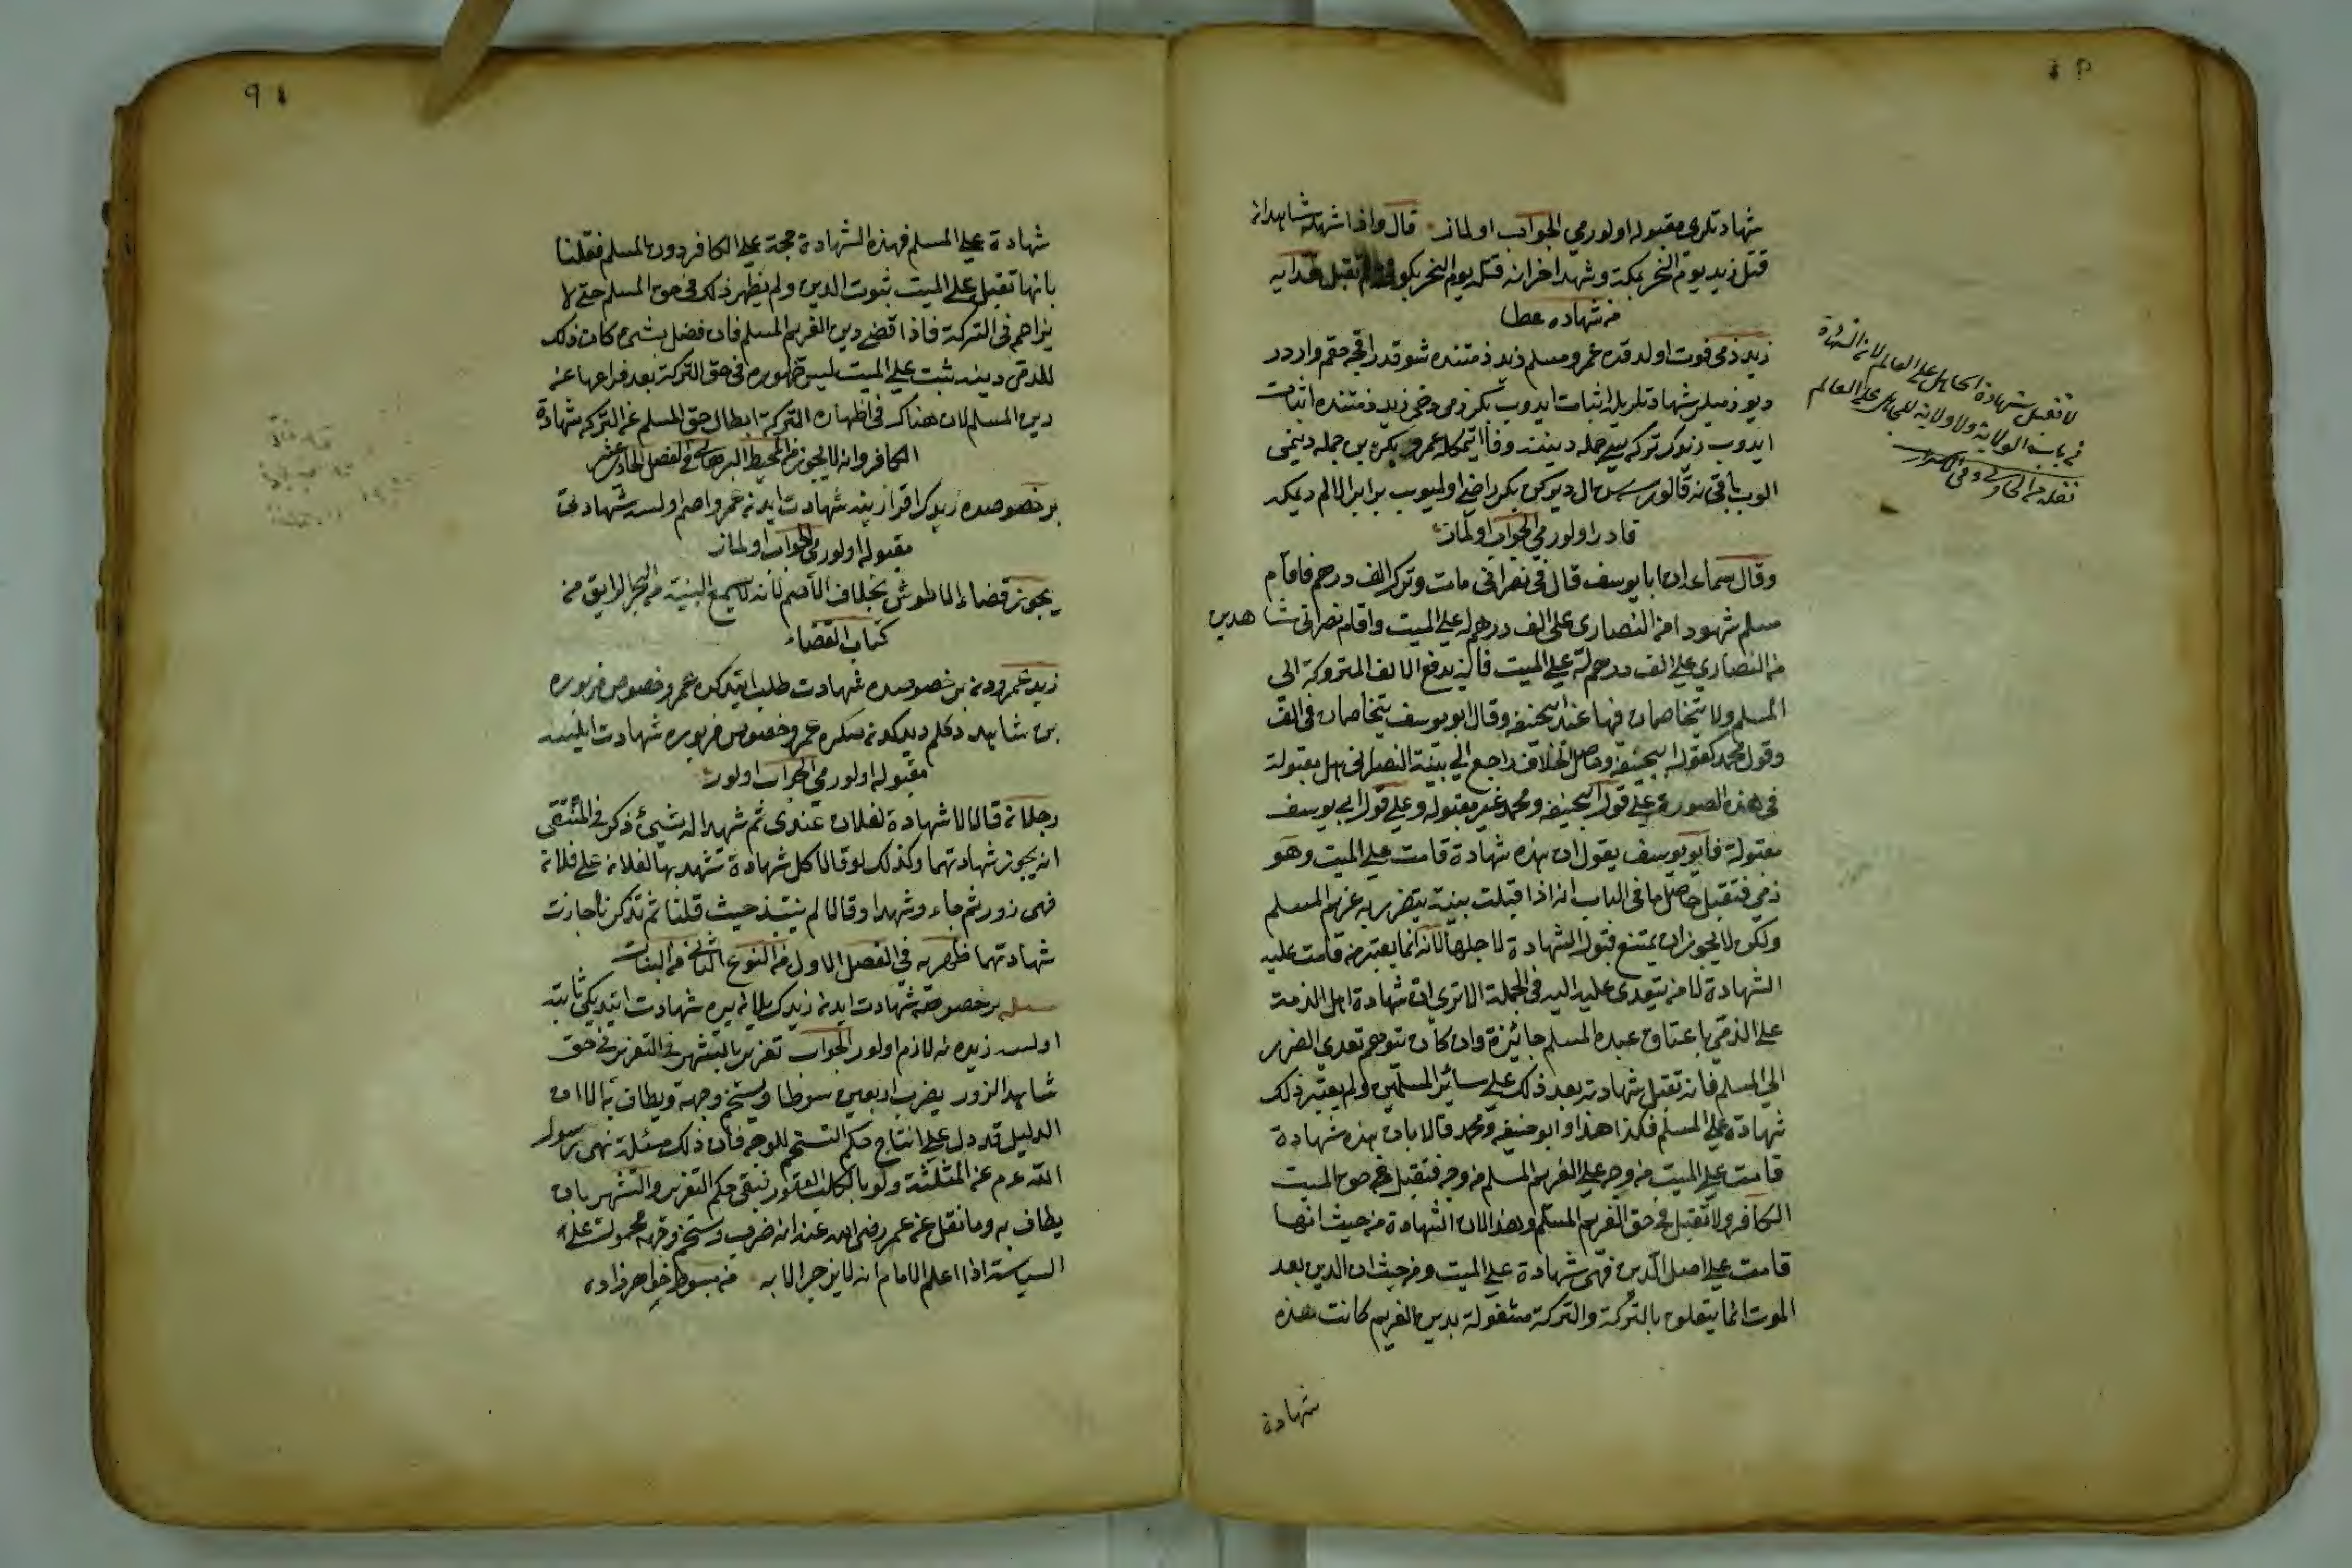 شهادتلری مقبوله اولورمی الجواب اولماز قال واذا شهد شاهدان
قتل زيد يوم النحر بمكة وشهد اخران قتل يوم النحر بكوفة لم تقبل هدايه
من شهاده
زيد ذمی فوت اولدقده عمرو مسلم زيد ذمتنده شو قدر اقچه حقم واردر
ديو ذميلر شهادتلريله اثبات ايدوب بكر ذمی دخی زيد ذمتنده اثبات
ايدوب زيدك تركه سی جمله ديننه وفا ايتمكله عمرو بكره بن جمله دينمی
الوب باقی نه قالورسه سن ال ديدكده بكر راضی اولميوب برابر الالم ديمكه
قادر اولورمی الجواب اولماز
وقال سماعه ان ابا يوسف قال فی نصرانی مات وترك الف درهم فاقام
مسلم شهودا من النصاری علی الف درهم له علی الميت واقام نصرانی شاهدين
من النصاری علی الف درهم له علی الميت فانه يدفع الالف المتروكة الی
المسلم ولا يتخاصمان فيها عند ابيحنيفه وقال ابو يوسف يتخاصمان فی الف
وقول محمد كقول ابيحنيفه وحاصل الخلاف راجع الی بينة النصرانی هل مقبولة
فی هذه الصورة علی قول ابيحنيفه ومحمد غير مقبوله وعلی قول ابی يوسف
مقبولة فابو يوسف يقول ان هذه شهادة قامت علی الميت وهو
ذمی فتقبل حاصل ما فی الباب انه اذا قبلت بينة يتضرر به غريم المسلم
ولكن لا يجوز ان يمتنع قبول الشهادة لاجلها لانه انما يعتبر من قامت عليه
الشهادة لا من يتعدی عليه اليه فی الجملة الا تری ان شهادة اهل الذمة
علی الذمی باعتاق عبده المسلم جائزة وان كان يتوهم تعدی الضرر
الی المسلم فانه تقبل شهادته بعد ذلك علی سائر المسلمين ولم يعتبر ذلك
شهادة علی المسلم فكذا هذا وابو حنيفه ومحمد قالا بان هذه شهادة
قامت علی الميت من وجه علی الغريم المسلم من وجه فتقبل فی حق الميت
الكافر ولا تقبل فی حق الغريم المسلم وهذا لان الشهادة من حيث انها
قامت علی اصل الدين فهی شهادة علی الميت ومن حيث ان الدين بعد
الموت انما يتعلق بالتركة والتركة مشغولة بدين الغريم كانت هذه
شهادة
لا تقبل شهادة الجاهل علی العالم لان الشهادة
من باب الولاية ولا ولاية للجاهل علی العالم
نقله من الحاوی
شهادة علی المسلم فهذه الشهادة حجة علی الكافر دون المسلم فقلنا
بانها تقبل علی الميت بثبوت الدين ولم يظهر ذلك فی حق المسلم حتی لا
يزاحم فی التركة فاذا قضی دين الغريم المسلم فان فضل شیء كان ذلك
للذمی دينه ثبت علی الميت ليس ظهوره فی حق التركة بعد فراغها عن
دين المسلم لان هناك فی اظهاره التركة ابطال حق المسلم عن التركه شهادة
الكافر وانه لا يجوز من المحيط البرهانی فی الفصل الحادی عشر
بر خصوصده زيدك اقرارينه شهادت ايدن عمرو اصم اولسه شهادتی
مقبوله اولورمی الجواب اولماز
يجوز قضاء الاطروش بخلاف الاصم لانه لا يسمع البينة من البحر الرايق من
كتاب القضاء
زيد عمرودن بر خصوصده شهادت طلب ايتدكده عمرو خصوص مزبوره
بن شاهد دكلم ديدكدنصكره عمرو خصوص مزبوره شهادت ايلسه
مقبوله اولورمی الجواب اولور
رجلان قالا لا شهادة لفلان عندی ثم شهدا له بشیء ذكر فی المنتقی
انه يجوز شهادتهما وكذلك لو قالا كل شهادة تشهد بها لفلان علی فلان
فهی زور ثم جاء وشهدا وقالا لم حيث قلنا ثم تذكرنا جازت
شهادتهما ظهيريه فی الفصل الاول من النوع الثانی من البينات
مسئله بر خصوصه شهادت ايدن زيدك يلان يره شهادت ايتديكی ثابت
اولسه زيده نه لازم اولور الجواب تعزير بالتشهير فی التعزير فی حق
شاهد الزور يضرب اربعين سوطا ويسخم وجهه ويطاف به الا ان
الدليل قد دل علی انتساخ حكم التسخيم للوجه فان ذلك مسئلة نهی رسول
الله عم عن المثلة ولو بالكلب العقور فبقی حكم التعزير والتشهير بان
يطاف به وما نقل عن عمر رضی الله عنه انه ضرب وسخم وجهه محمول علی
السياسة اذا اعلم الامام انه لا ينزجر الا به من مبسوط خواهرزاده